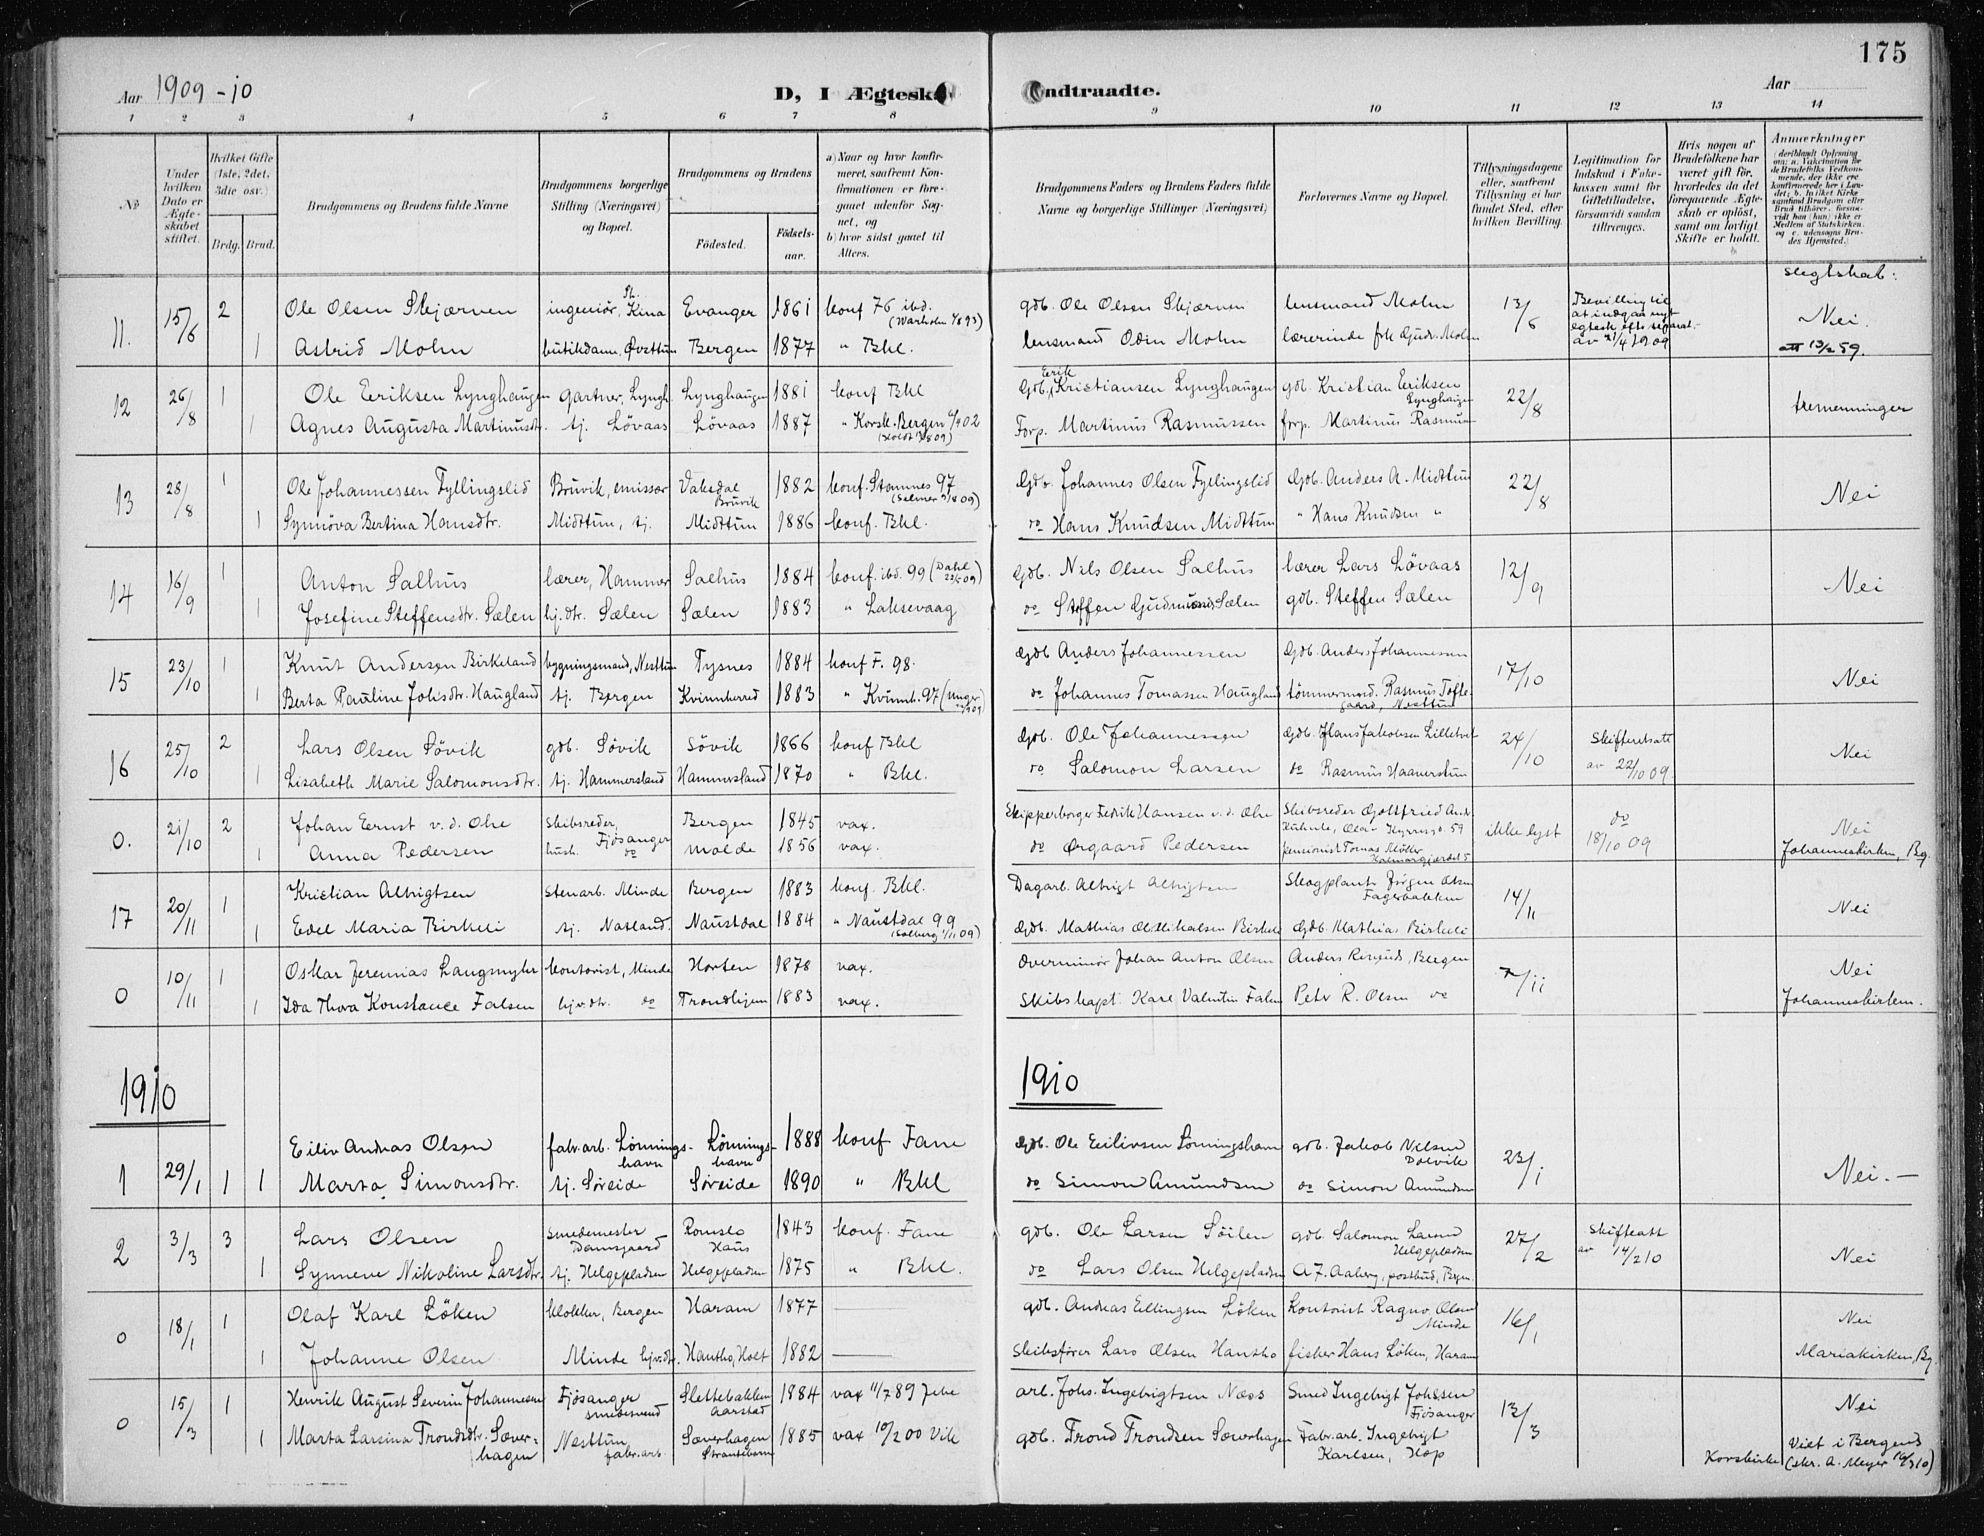 175
Aar 1909-10
D, I Ægtesk
ndtraadte.
Aar
1 2 3 4 5 6 7 8 9 10 11 12 13 14
No
Under hvilken Dato er Ægteskabet stiftet.
Hvilket Gifte (1ste, 2det, 3die osv.)
Brdg. Brud.
Brudgommens og Brudens fulde Navne
Brudgommens borgerlige Stilling (Næringsvei) og Bopæl.
Brudgommens og Brudens
Fødested. Fødselsaar.
a) Naar og hvor konfirmeret, saafremt Konfirmationen er foregaaet udenfor Sognet, og
b) hvor sidst gaaet til Alters.
Brudgommens Faders og Brudens Faders fulde Navne og borgerlige Stillinger (Næringsvei)
Forlovernes Navne og Bopæl.
Tillysningsdagene eller, saafremt Tillysning ei har fundet Sted, efter hvilken Bevilling.
Legitimation for Indskud i Enkekassen samt for Giftetilladelse, forsaavidt saadan tiltrænges.
Hvis nogen af Brudefolkene har været gift før, hvorledes da det foregaaende Ægteskab er opløst, samt om lovligt Skifte er holdt.
Anmærkninger
Slegtskab:
11. 15/6 2 Ole Olsen Skjærven ingeniør, Kina Evanger 1861 konf 76 ibd. gdb. Ole Olsen Skjærven lensmand Mohn 13/6 Bevilling til at indgaa nyt egtesk. efter separat. av 21/4 1909 Nei.
1 Astrid Mohn butikdame, Øvsttun Bergen 1877 " Bkl. lensmand Odin Mohn lærerinde frk Gudr. Mohn 13/2 59.
12 26/8 1 Ole Eriksen Lynghaugen gartner, Lyngh. Lynghaugen 1881 konf Bkl Gdb. Erik Kristiansen Lynghaugen gdb. Kristian Eriksen Lynghaugen 22/8 tremenninger
1 Agnes Augusta Martinusdtr. tj. Løvaas Løvaas 1887 " Korsk. Bergen Forp. Martinus Rasmussen forp. Martinus Rasmussen
13 28/8 1 Ole Johannessen Fyllingslid Bruvik, emissær Vaksdal Bruvik 1882 konf. Stamnes 97 Gdb. Johannes Olsen Fyllingslid Gdb. Anders A. Midttun 22/8 Nei
1 Synnøva Bertina Hansdtr. Midttun, tj. Midttun 1886 konf. Bkl. do Hans Knudsen Midttun " Hans Knudsen "
14 16/9 1 Anton Salhus lærer, Hammer Salhus 1884 konf. ibd. 99 (Dahl 09) Gdb. Nils Olsen Salhus lærer Lars Løvaas 12/9 Nei
1 Josefine Steffensdtr. Sælen hj.dtr. Sælen Sælen 1883 " Laksevaag do Steffen Gudmunds. Sælen gdb. Steffen Sælen
15 23/10 1 Knut Andersen Birkeland bygningsmand, Nesttun Tysnes 1884 konf F. 98. Gdb Anders Johannessen Gdb. Anders Johannessen 17/10 Nei
1 Berta Pauline Johsdtr. Haugland tj. Bergen Kvinnherred 1883 " Kvinnh. 97 do Johannes Tomassen Haugland tømmermd. Rasmus Toftegaard, Nesttun
16 25/10 2 Lars Olsen Søvik gdb. Søvik Søvik 1866 konf Bkl Gdb. Ole Johannessen Gdb. Hans Jakobsen Lilletvet 24/10 Skifteretsatt av 22/10 09. Nei
1 Lisabeth Marie Salomonsdtr. tj. Hammersland Hammersland 1870 " Bkl. do Salomon Larsen do Rasmus Haaverstun
0. 21/10 2 Johan Ernst v. d. Ohe skibsreder, Fjøsanger Bergen 1845 vax. Skipperborger Fredrik Hansen v. d. Ohe Skibsreder Gottfried And. Olav Kyrresg. 59 ikke lyst do 18/10 09 Nei
1 Anna Pedersen hush. do Molde 1856 vax. do Ørgaard Pedersen pensionist Tomas Møller Kalmargjerdet 5 Johanneskirken, Bg.
17 20/11 1 Kristian Albrigtsen stenarb. Minde Bergen 1883 konf. Bkl. Dagarb. Albrigt Albrigtsen Skogplant. Jørgen Olsen Fagerbakken 14/11 Nei
1 Edel Maria Birkeli tj. Natland. Naustdal 1884 " Naustdal 99 (Solberg 1/11 09) Gdb. Mathias Birkeli Gdb. Mathias Birkeli
0 10/11 1 Oskar Jeremias Langmyhr kontorist, Minde Horten 1878 vax. Overminør Johan Anton Olsen Anders Bergen 7/11 Nei
1 Ida Thora Konstance Falsen hj.v.dtr. do Trondhjem 1883 vax. Skibskapt. Karl Valentin Falsen Peter R. Olsen do Johanneskirken.
1910
1910
1 29/1 1 1 Eiliv Andreas Olsen fabr.arb. Lønningshavn Lønningshavn 1888 konf Fane Gdb. Ole Eilivsen Lønningshavn gdb. Jakob Nilsen Dolvik 23/1 Nei.—
Marta Simonsdtr. tj. Søreide Søreide 1890 " Bkl do Simon Amundsen do Simon Amundsen
2 3/3 3 Lars Olsen Smedemester Damsgaard Romslo Haus 1843 konf. Fane gdb. Ole Larsen Søilen gdb. Salomon Larsen Helgepladsen 27/2 Skifteatt av 14/2 10 Nei
1 Synneve Nikoline Larsdtr. tj. Helgepladsen Helgepladsen 1875 " Bkl. do Lars Olsen Helgepladsen A. F. Aaberg, postbud, Bergen
0 18/1 1 Olaf Karl Løken klokker, Bergen Haram 1877 gdb. Andreas Ellingsen Løken Kontorist Ragnv. Olsen Minde 16/1 Nei
1 Johanne Olsen Minde hj.v.dtr. Hantho, Holt 1882 Skibsfører Lars Olsen Hantho fisker Hans Løken, Haram Mariakirken, Bg.
0 15/3 1 Henrik August Severin Johannessen Fjøsanger smedesvend Slettebakken Aarstad 1884 vax 11/7 89 Jebe arb. Johs. Ingebrigtsen Næss Smed Ingebrigt Johssen Fjøsanger 13/3 Nei
1 Marta Larsina Trondsdtr. Sæverhagen Nesttun fabr.arb. Sæverhagen Strandebarm 1885 vax 10/2 00 Vik gdb. Trond Trondsen Sæverhagen Fabr.arb. Ingebrigt Karlsen, Hop Korskirke Viet i Bergens (skr. A. Meyer 10)